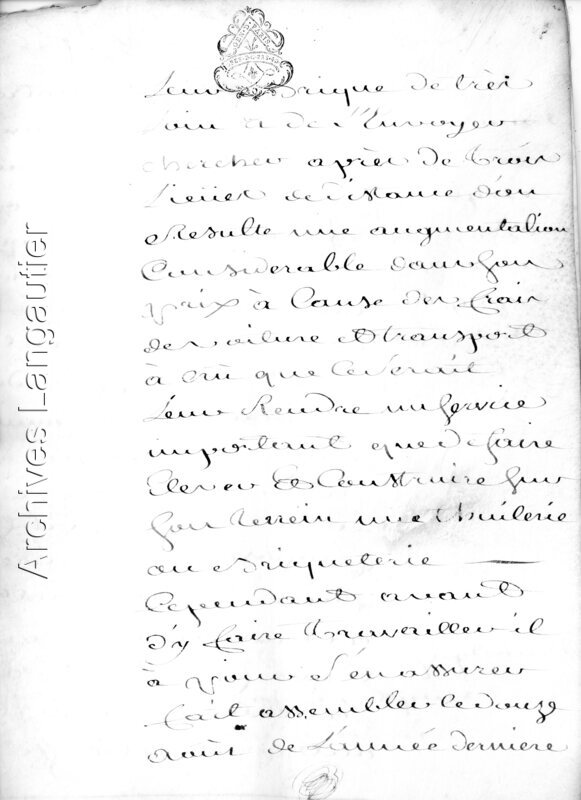 Leur Brique de très
loin et de l'Envoyer
chercher a près de trois
Lieües de distance d'ou
Résulte une augmentation
Considerable dans son
prix à Cause des frais
de voiture et transport
à crû que ce serait
Leur Rendre un service
important que de faire
Elever Et Construire sur
son terrein une thuilerie
ou Briqueterie
Cependant avant
d'y faire travailler il
à pour s'en assurer
fait assembler le douze
août de L'année derniere
Archives Langautier